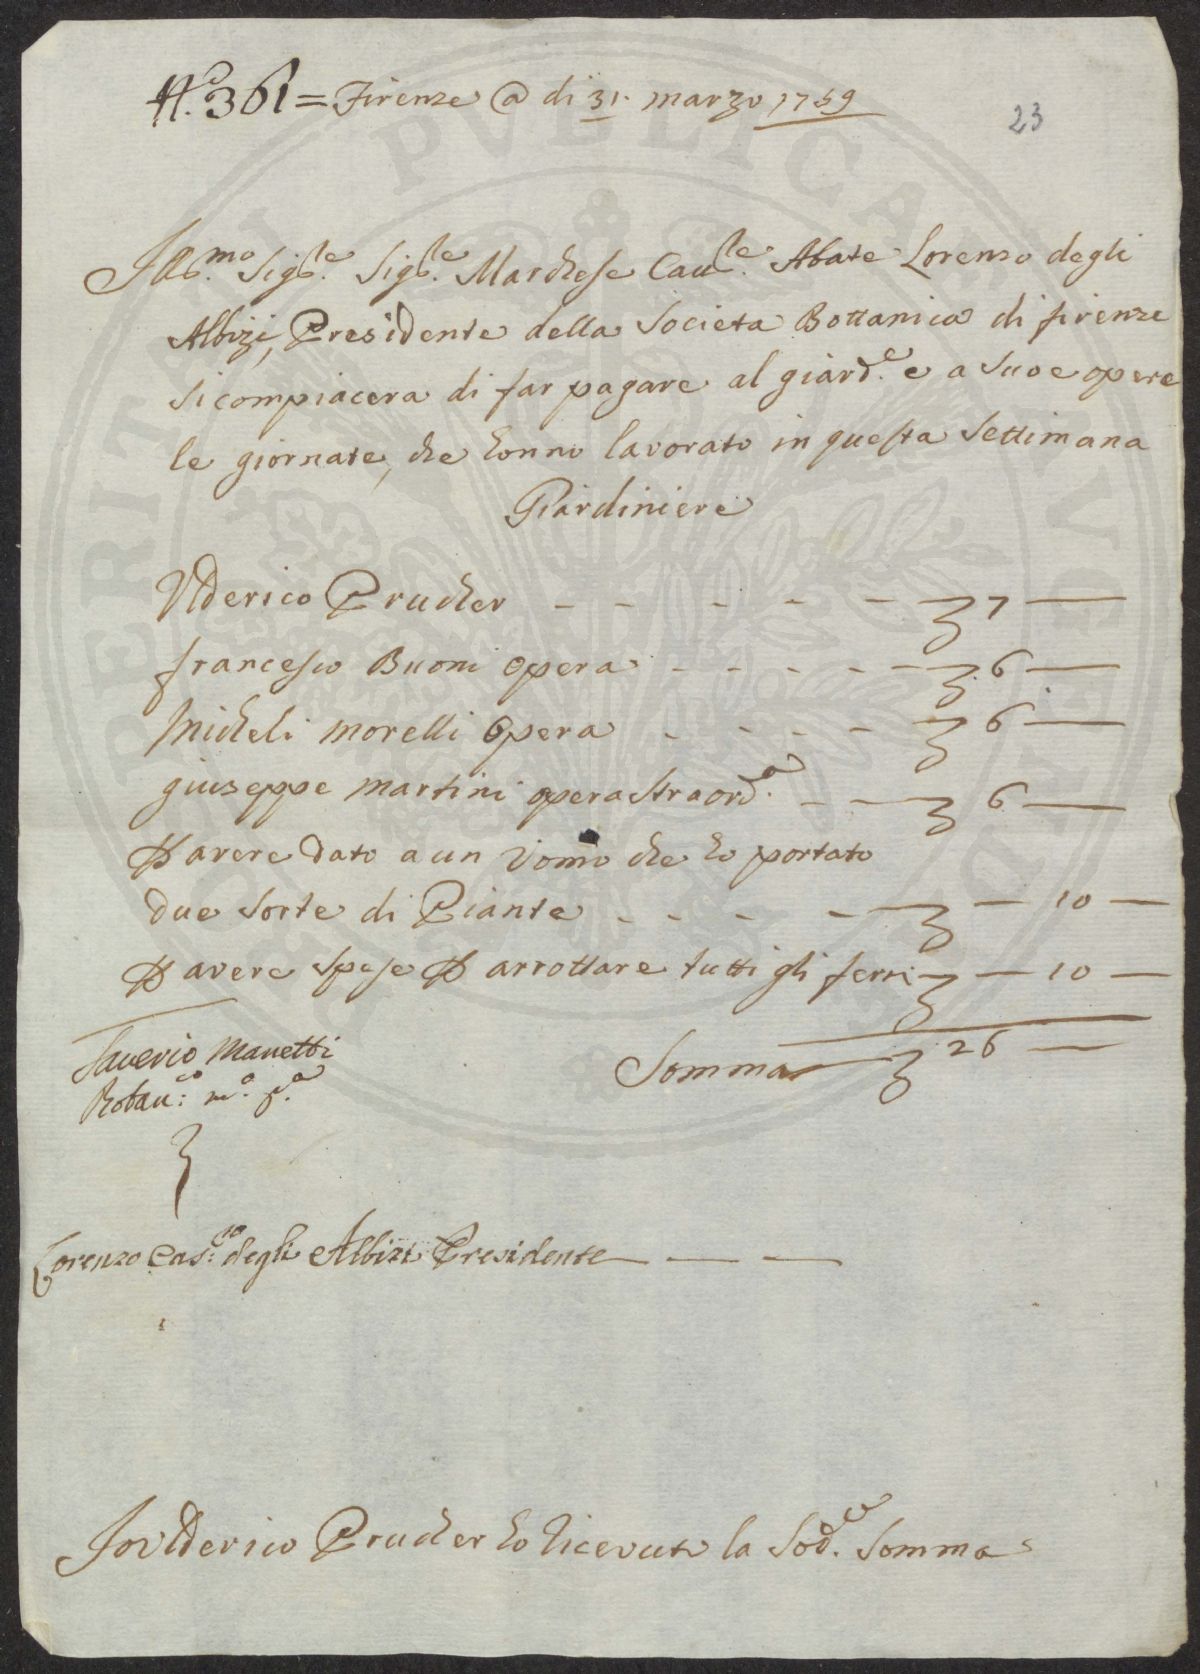 N.º 361 = Firenze @ di 31. marzo 1759
23
Ill.mo Sig.re Sig.re Marchese Cau.re Abate Lorenzo degli
Albizi, Presidente della Societa Bottanica di firenze
si compiacera di far pagare al giard.e e a suoe opere
le giornate, che honno lavorato in questa settimana
Giardiniere
Ulderico Prucher - - - - - 7 —
francesco Buoni opera - - - - - 6 —
Micheli morelli opera - - - - 6 —
giuseppe martini opera straord.a - - 6 —
P avere dato a un vomo che ho portato
due sorte di Piante - - - - — 10 —
P avere spese P arrottare tutti gli ferri — 10 —
Somma 26 —
Saverio Manetti
Botan:co m.o p.a
Lorenzo Cas:no degli Albizi Presidente — — —
Io Vlderico Prucher ho ricevuto la Sod.a Somma